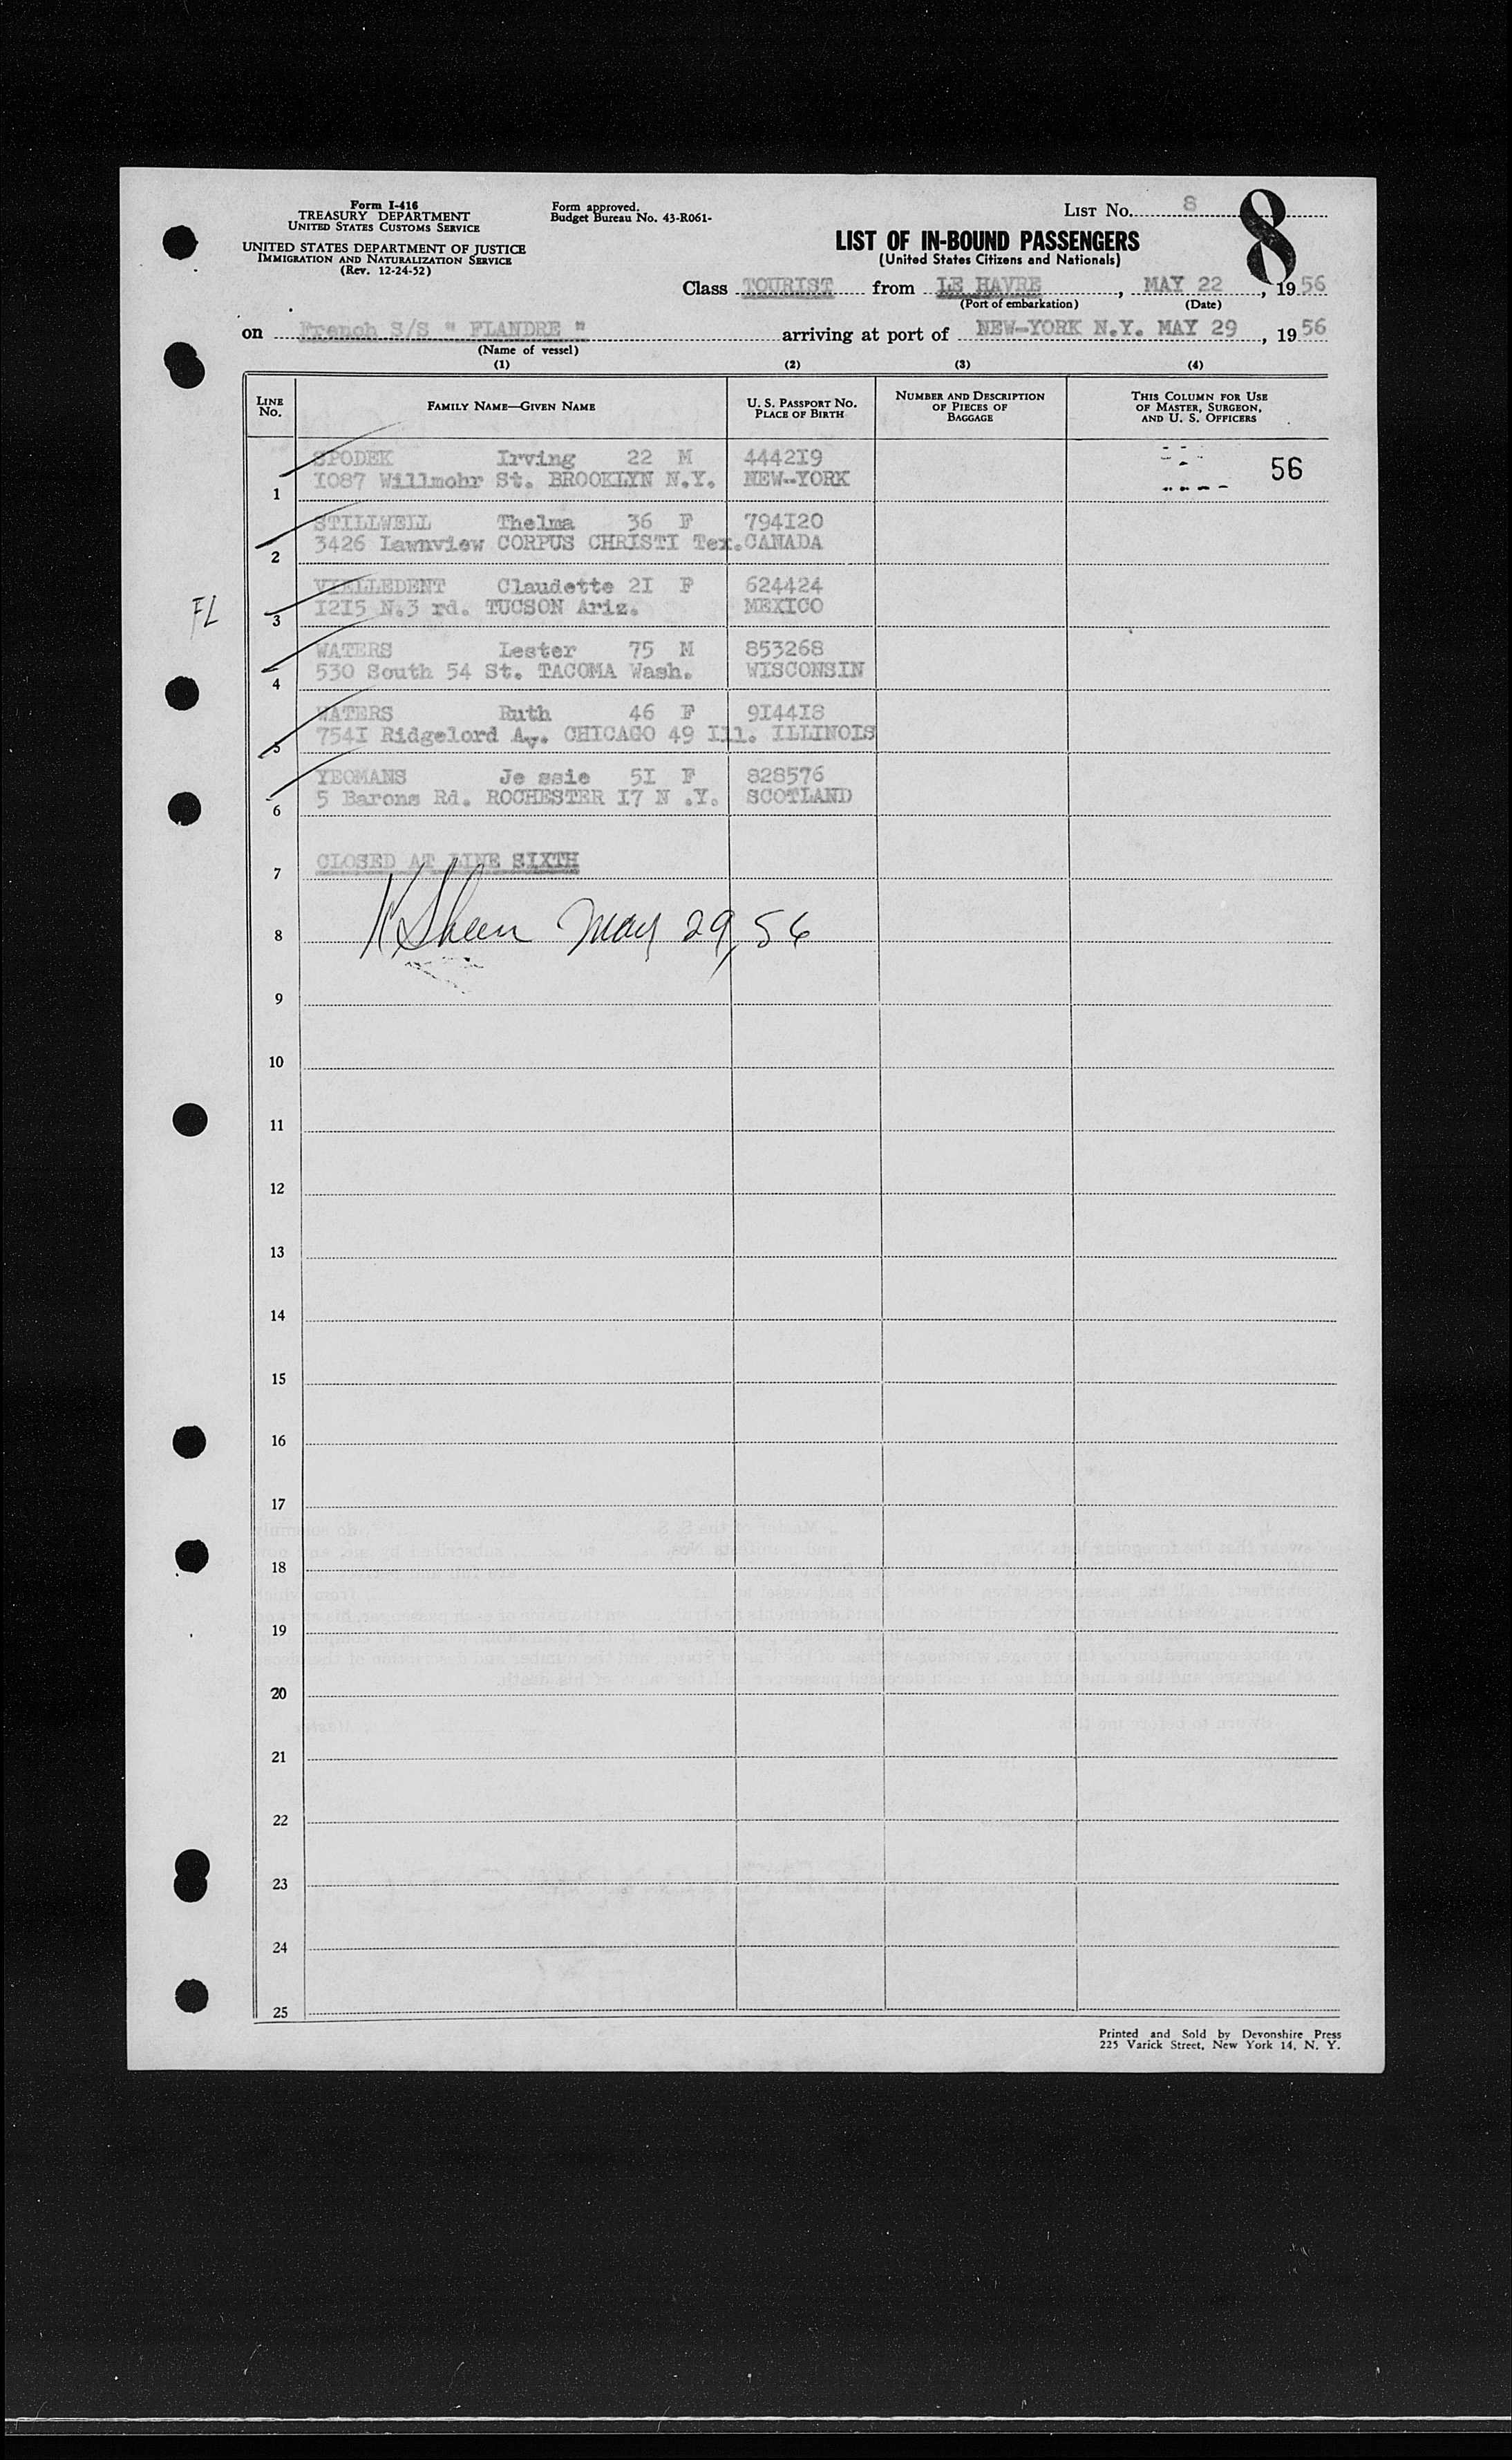 Form I-416
TREASURY DEPARTMENT
UNITED STATES CUSTOMS SERVICE
UNITED STATES DEPARTMENT OF JUSTICE
IMMIGRATION AND NATURALIZATION SERVICE
(Rev. 12-24-52)
Form approved.
Budget Bureau No. 43-R061-
LIST No. 8
8
LIST OF IN-BOUND PASSENGERS
(United States Citizens and Nationals)
Class TOURIST from LE HAVRE, MAY 22, 1956
(Port of embarkation) (Date)
on French S/S " FLANDRE " arriving at port of NEW-YORK N.Y. MAY 29, 1956
(Name of vessel)
(1) (2) (3) (4)
LINE No. FAMILY NAME—GIVEN NAME U. S. PASSPORT No. PLACE OF BIRTH NUMBER AND DESCRIPTION OF PIECES OF BAGGAGE THIS COLUMN FOR USE OF MASTER, SURGEON, AND U. S. OFFICERS
SPODEK Irving 22 M 444219 56
1 1087 Willmohr St. BROOKLYN N.Y. NEW-YORK
STILLWELL Thelma 36 F 794120
2 3426 Lawnview CORPUS CHRISTI Tex. CANADA
VIELLEDENT Claudette 2I F 624424
FL
3 I2I5 N.3 rd. TUCSON Ariz. MEXICO
WATERS Lester 75 M 853268
4 530 South 54 St. TACOMA Wash. WISCONSIN
WATERS Ruth 46 F 9I44I8
5 754I Ridgelord Av. CHICAGO 49 Ill. ILLINOIS
YEOMANS Je ssie 5I F 828576
6 5 Barons Rd. ROCHESTER I7 N .Y. SCOTLAND
7 CLOSED AT LINE SIXTH
8 May 29, 56
9
10
11
12
13
14
15
16
17
18
19
20
21
22
23
24
25
Printed and Sold by Devonshire Press
225 Varick Street, New York 14, N. Y.